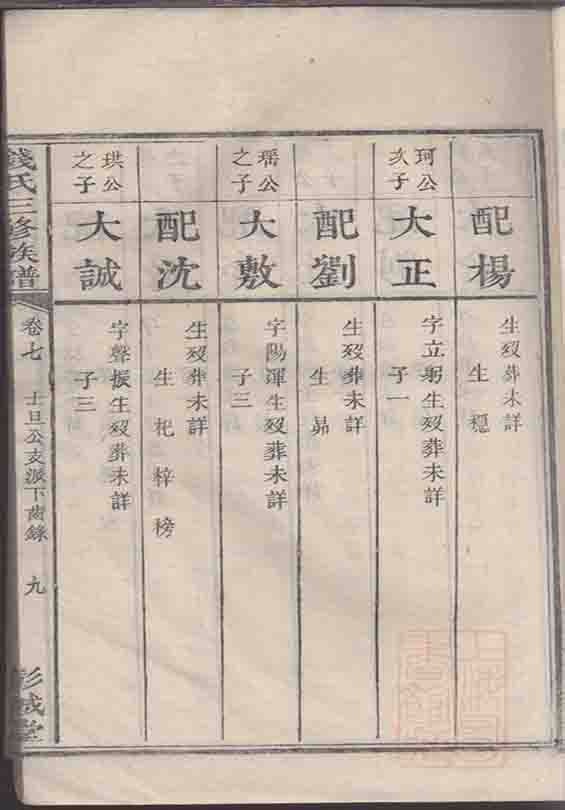 配楊
生歿葬未詳
生穩
珂公
次子
大正
字立躬生歿葬未詳
子一
配劉
生歿葬未詳
生昴
瑶公
之子
大敷
字陽渾生歿葬未詳
子三
配沈
生歿葬未詳
生杞梓榜
珙公
之子
大誠
字聲振生歿葬未詳
子三
錢氏三修族譜
卷七
士旦公支派下齒錄
九
彭城堂